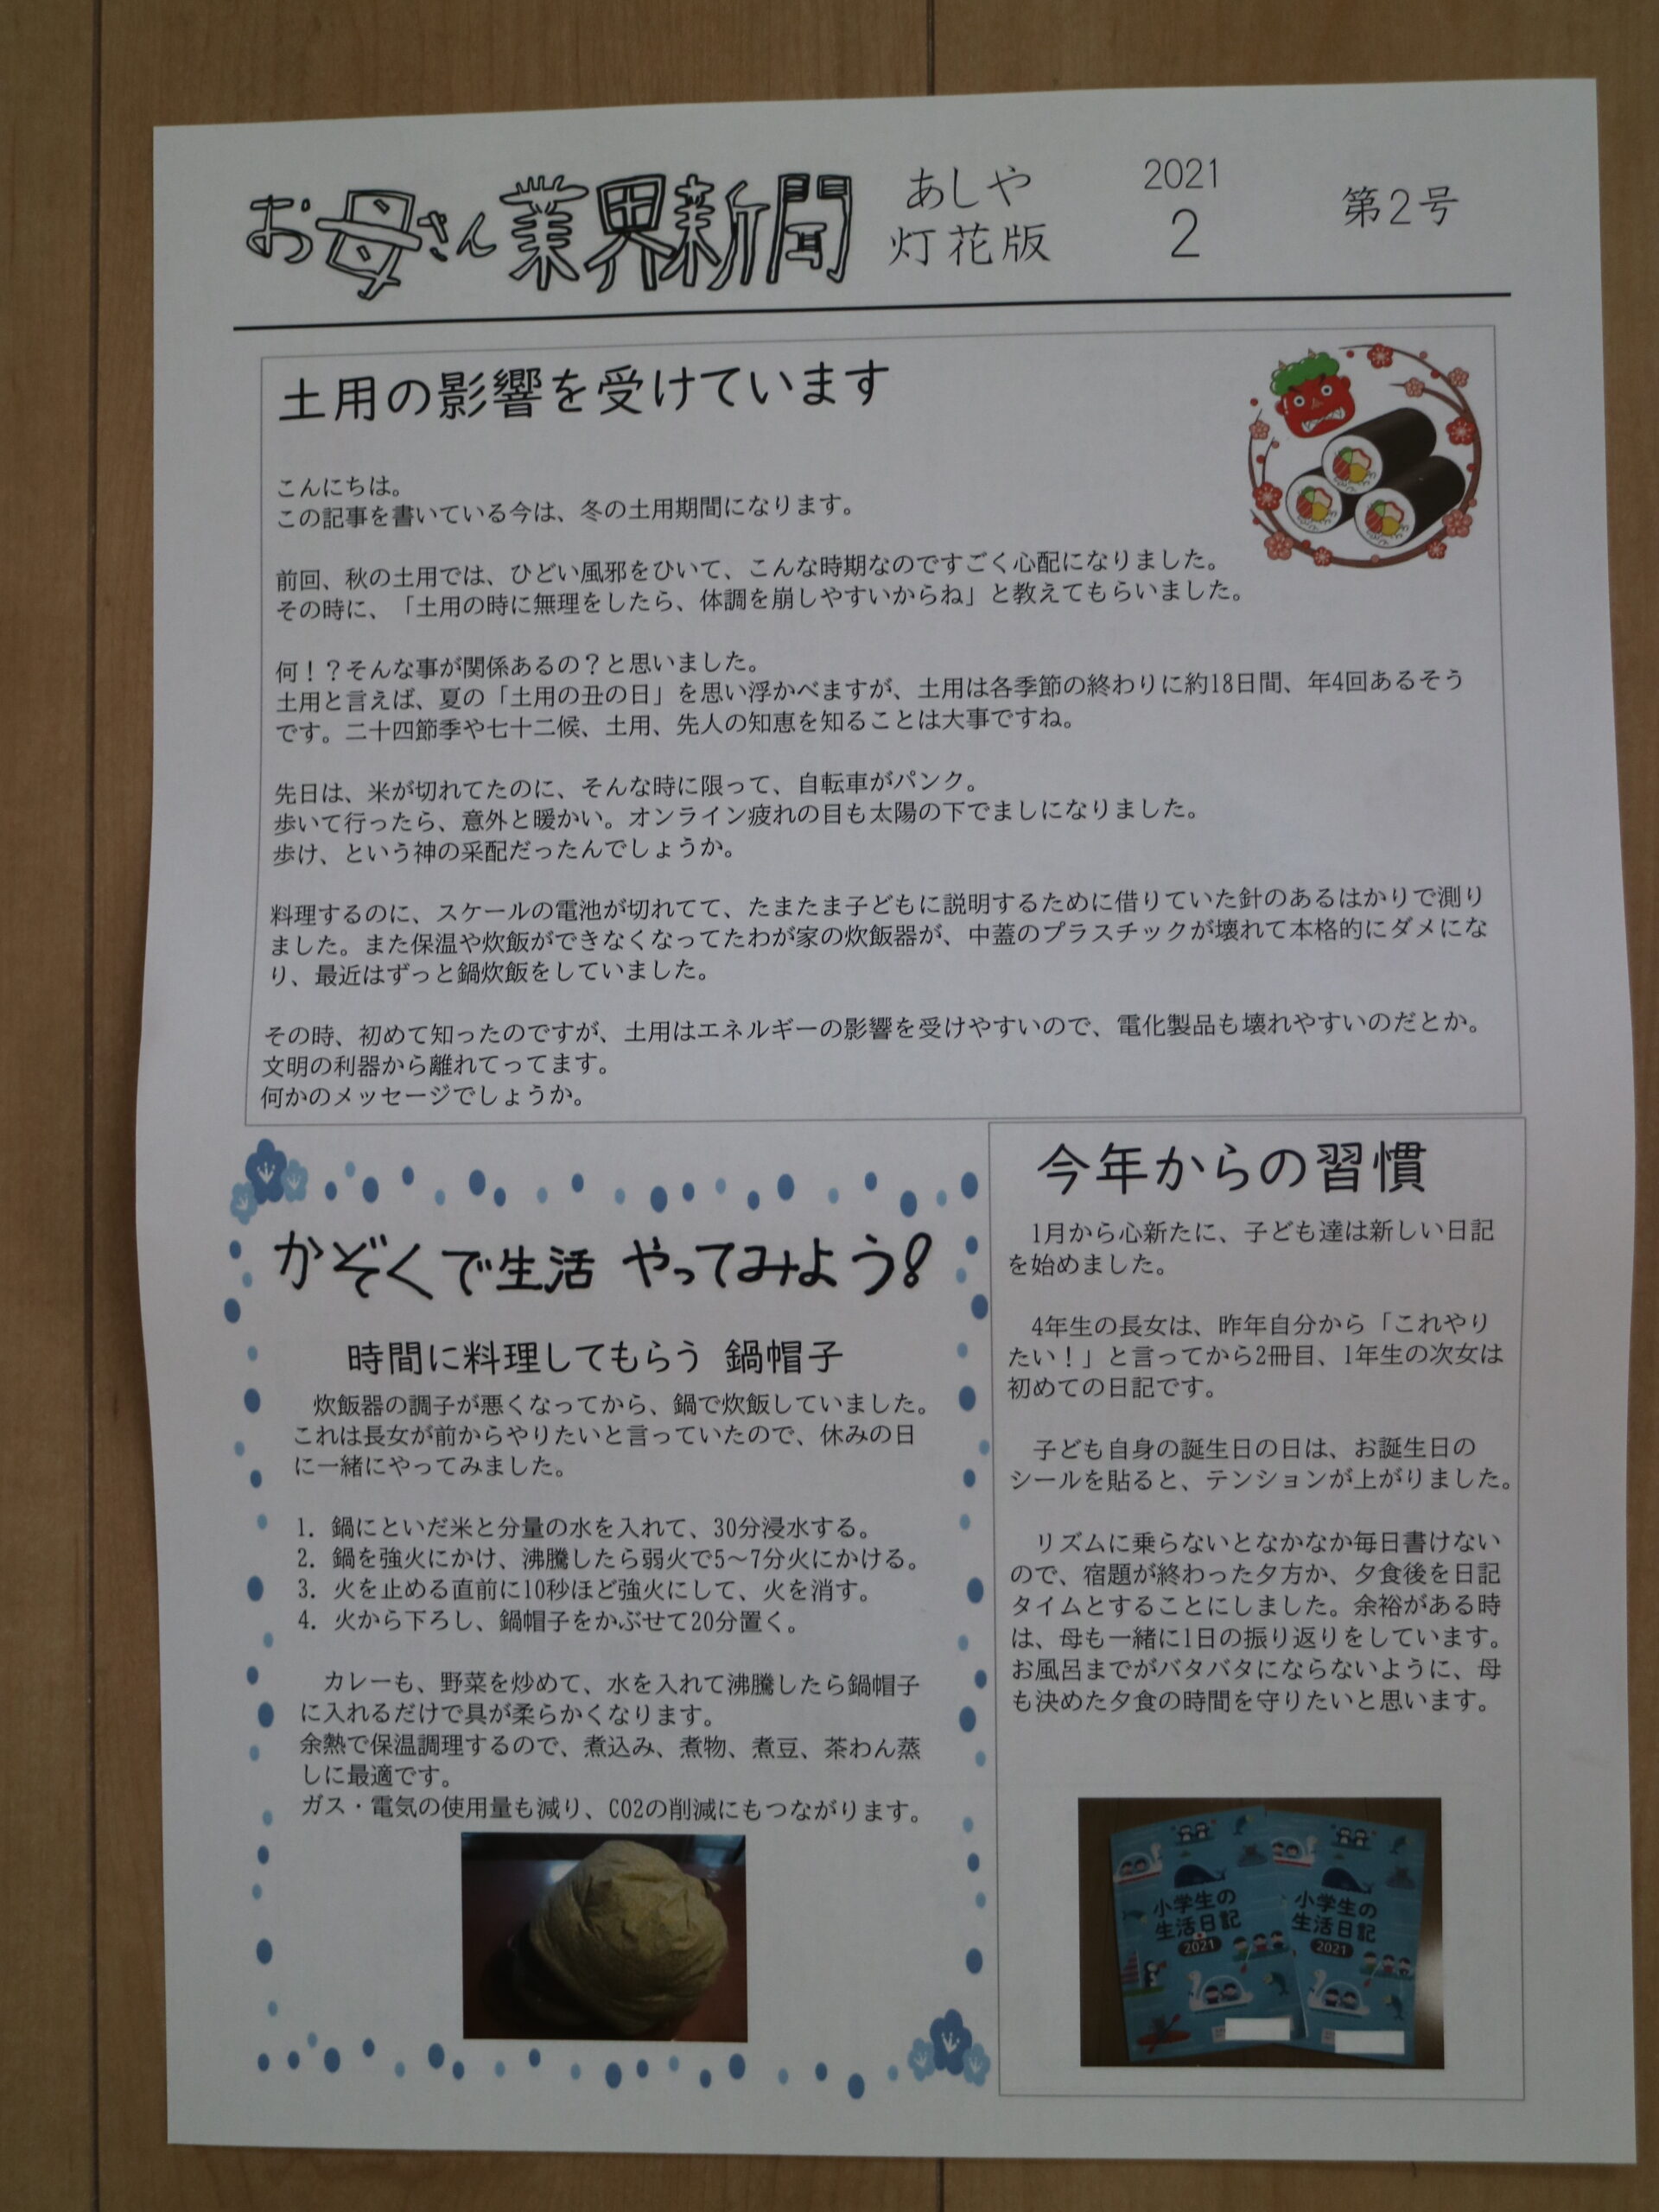 お母さん業界新聞
あしや
灯花版
2021
2
第2号
土用の影響を受けています
こんにちは。
この記事を書いている今は、冬の土用期間になります。
前回、秋の土用では、ひどい風邪をひいて、こんな時期なのですごく心配になりました。
その時に、「土用の時に無理をしたら、体調を崩しやすいからね」と教えてもらいました。
何！？そんな事が関係あるの？と思いました。
土用と言えば、夏の「土用の丑の日」を思い浮かべますが、土用は各季節の終わりに約18日間、年4回あるそう
です。二十四節季や七十二候、土用、先人の知恵を知ることは大事ですね。
先日は、米が切れてたのに、そんな時に限って、自転車がパンク。
歩いて行ったら、意外と暖かい。オンライン疲れの目も太陽の下でましになりました。
歩け、という神の采配だったんでしょうか。
料理するのに、スケールの電池が切れてて、たまたま子どもに説明するために借りていた針のあるはかりで測り
ました。また保温や炊飯ができなくなってたわが家の炊飯器が、中蓋のプラスチックが壊れて本格的にダメにな
り、最近はずっと鍋炊飯をしていました。
その時、初めて知ったのですが、土用はエネルギーの影響を受けやすいので、電化製品も壊れやすいのだとか。
文明の利器から離れてってます。
何かのメッセージでしょうか。
かぞくで生活 やってみよう!
時間に料理してもらう 鍋帽子
炊飯器の調子が悪くなってから、鍋で炊飯していました。
これは長女が前からやりたいと言っていたので、休みの日
に一緒にやってみました。
1. 鍋にといだ米と分量の水を入れて、30分浸水する。
2. 鍋を強火にかけ、沸騰したら弱火で5～7分火にかける。
3. 火を止める直前に10秒ほど強火にして、火を消す。
4. 火から下ろし、鍋帽子をかぶせて20分置く。
カレーも、野菜を炒めて、水を入れて沸騰したら鍋帽子
に入れるだけで具が柔らかくなります。
余熱で保温調理するので、煮込み、煮物、煮豆、茶わん蒸
しに最適です。
ガス・電気の使用量も減り、CO2の削減にもつながります。
今年からの習慣
1月から心新たに、子ども達は新しい日記
を始めました。
4年生の長女は、昨年自分から「これやり
たい！」と言ってから2冊目、1年生の次女は
初めての日記です。
子ども自身の誕生日の日は、お誕生日の
シールを貼ると、テンションが上がりました。
リズムに乗らないとなかなか毎日書けない
ので、宿題が終わった夕方か、夕食後を日記
タイムとすることにしました。余裕がある時
は、母も一緒に1日の振り返りをしています。
お風呂までがバタバタにならないように、母
も決めた夕食の時間を守りたいと思います。
小学生の
生活日記
2021
小学生の
生活日記
2021